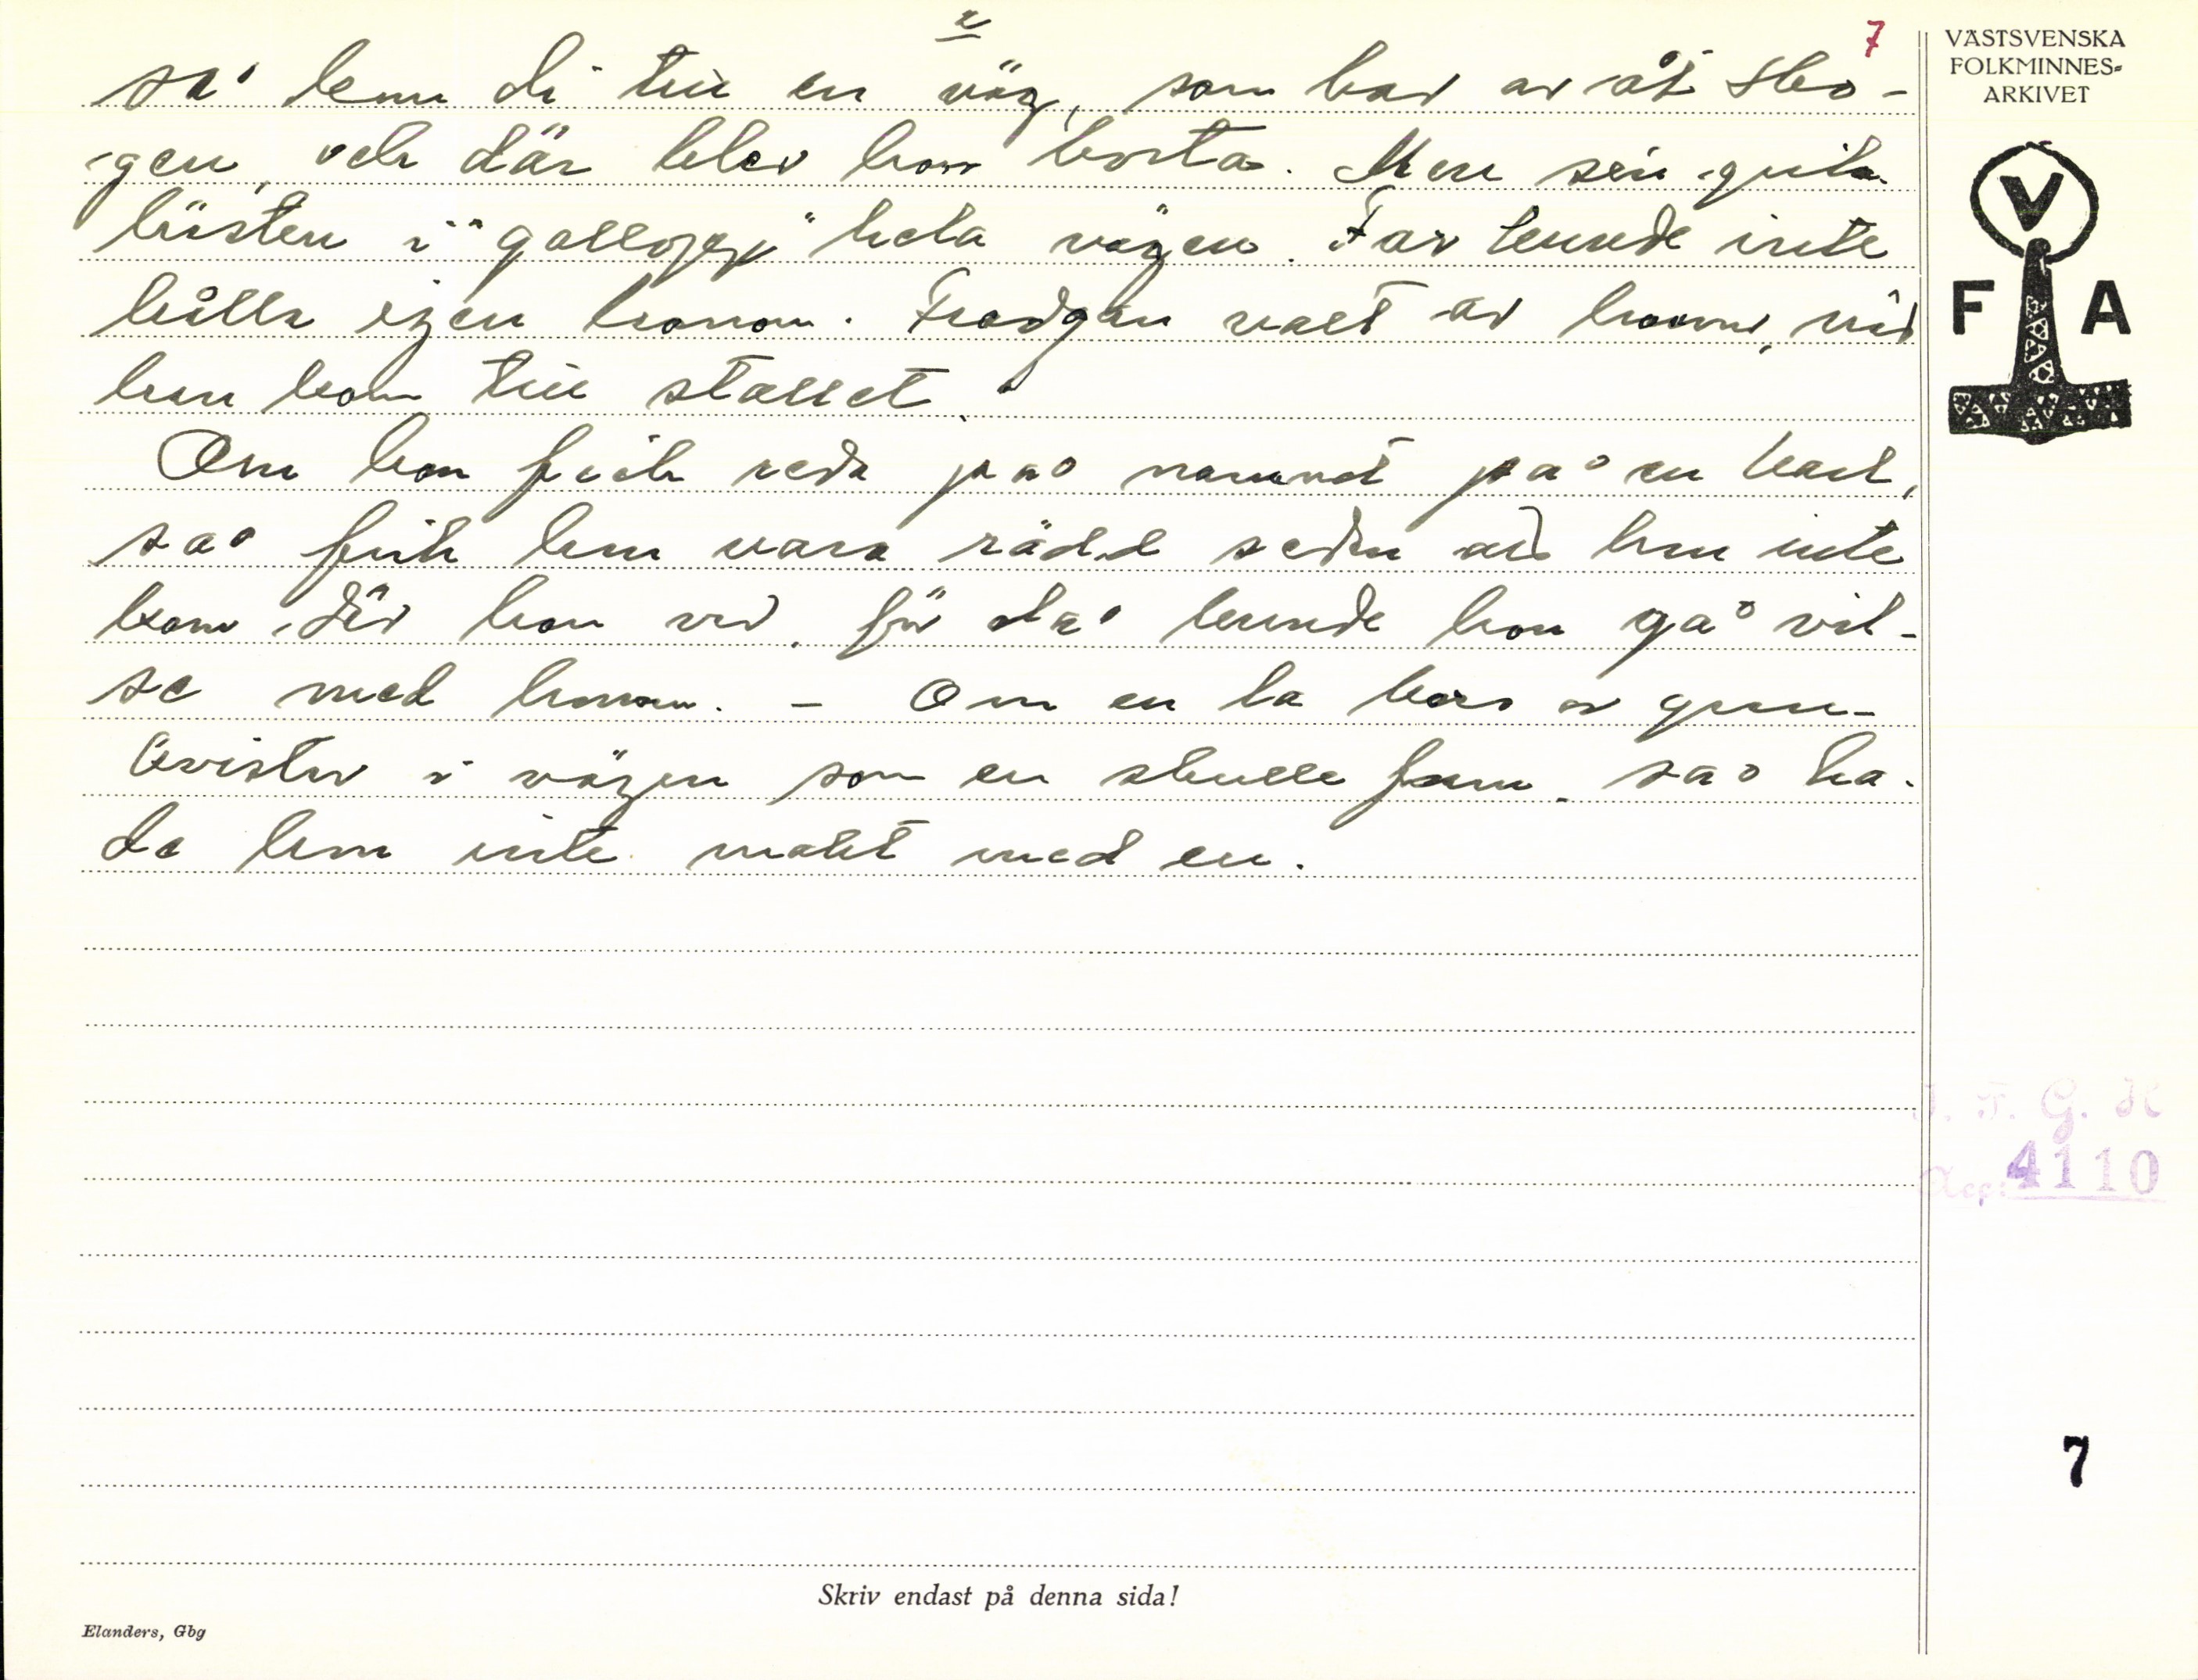 2
7
så kom di till en väg, som bar av åt sko-
gen, och där blev hon borta. Men sen gick
hästen i "galopp" hela vägen. Far kunde inte
hålla igen honom. Fradgan valt av honom, når
han kom till stallet.
Om hon feck reda på namnet på en karl,
så feck han vara rädd sedan att han inte
kom där hon var, för då kunde hon gå vil-
se med honom. - Om en la kors av gran-
kvistar i vägen som en skulle fram, så ha-
de hon inte makt med en.
VÄSTSVENSKA
FOLKMINNES-
ARKIVET
V
F A
I. F. G. H
Acc: 4110
7
Skriv endast på denna sida!
Elanders, Gbg